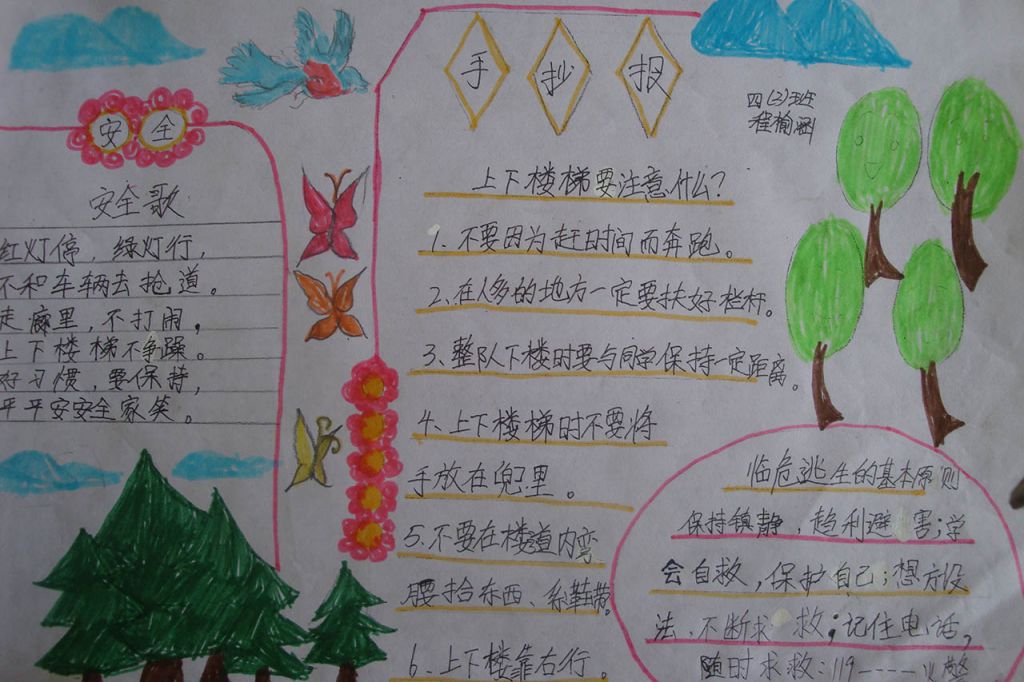 手抄报
四(3)班
程榆涵
安全
安全歌
红灯停，绿灯行，
不和车辆去抢道。
走廊里，不打闹，
上下楼梯不争躁。
好习惯，要保持，
平平安安全家笑。
上下楼梯要注意什么？
1、不要因为赶时间而奔跑。
2、在人多的地方一定要扶好栏杆。
3、整队下楼时要与同学保持一定距离。
4、上下楼梯时不要将
手放在兜里。
5、不要在楼道内弯
腰拾东西、系鞋带。
6、上下楼靠右行。
临危逃生的基本原则
保持镇静，趋利避害；学
会自救，保护自己；想方设
法、不断求救；记住电话，
随时求救：119----火警